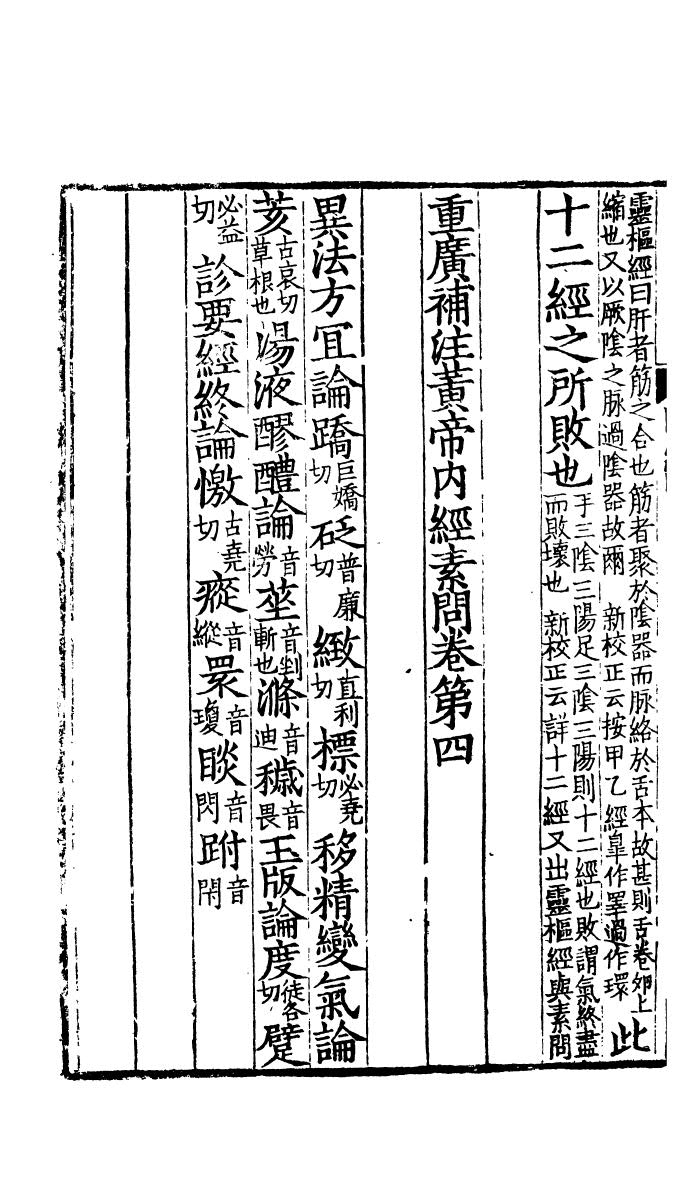 靈樞經曰肝者筋之合也筋者聚於陰器而脉絡於舌本故甚則舌卷夘上
縮也又以厥陰之脉過陰器故爾　新校正云按甲乙經睾作睪過作環　此
十二經之所敗也手三陰三陽足三陰三陽則十二經也敗謂氣終盡
而敗壞也　新校正云詳十二經又出靈樞經與素問
重廣補注黃帝內經素問卷第四
異法方宜論蹻巨嬌切砭普廉切緻直利切標必堯切移精變氣論
荄古哀切草根也湯液醪醴論音勞莝音剉斬也滌音迪穢音畏玉版論度徒各切躄
必益切診要經終論憿古堯切瘲音縱睘音瓊睒音閃跗音閑